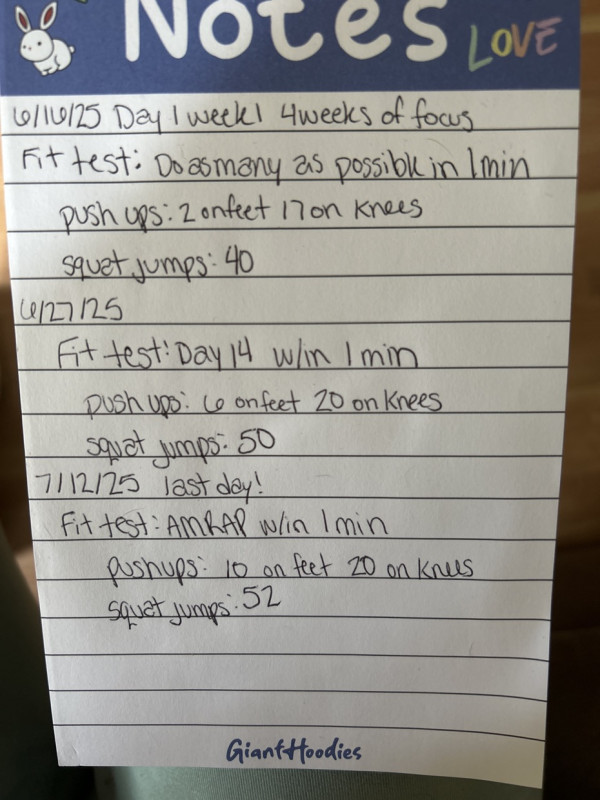 Notes LOVE
6/16/25 Day 1 week 1 4 weeks of focus
Fit test: Do as many as possible in 1 min
push ups: 2 on feet 17 on knees
squat jumps: 40
6/27/25
Fit test: Day 14 w/in 1 min
push ups: 6 on feet 20 on knees
squat jumps: 50
7/12/25 last day!
Fit test: AMRAP w/in 1 min
pushups: 10 on feet 20 on knees
squat jumps: 52
GiantHoodies